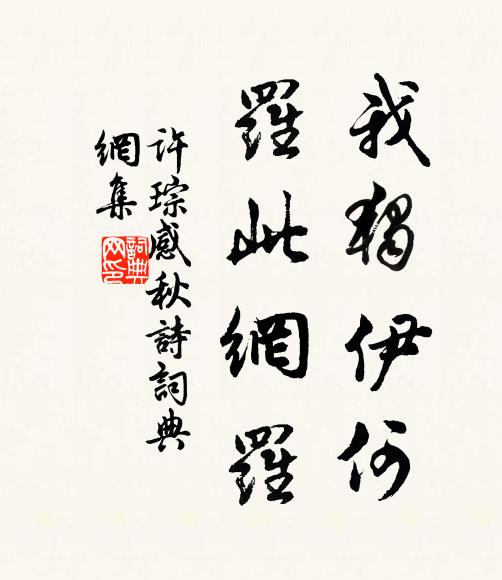 我独伊何
羅此網羅
許琮感秋詩詞典
網集
詞典网印